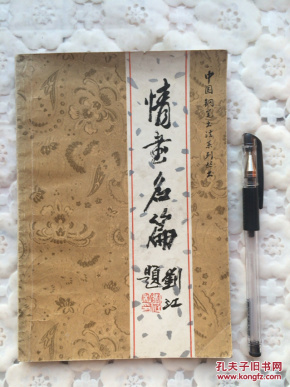 中国钢笔书法系列丛书
情书名篇
刘江
题
www.kongfz.com